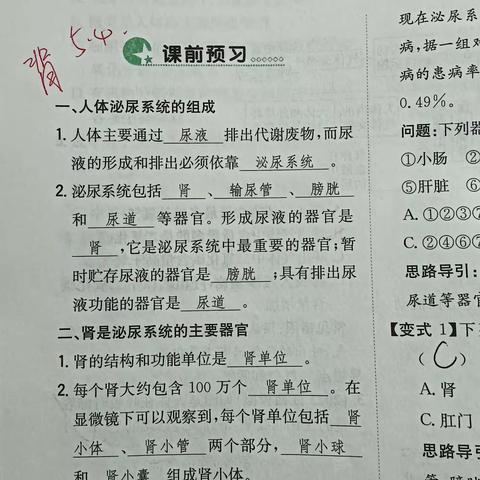 背 5.4.
课前预习
一、人体泌尿系统的组成
1. 人体主要通过 尿液 排出代谢废物,而尿
液的形成和排出必须依靠 泌尿系统 。
2. 泌尿系统包括 肾 、 输尿管 、 膀胱
和 尿道 等器官。形成尿液的器官是
肾 ,它是泌尿系统中最重要的器官;暂
时贮存尿液的器官是 膀胱 ;具有排出尿
液功能的器官是 尿道 。
二、肾是泌尿系统的主要器官
1. 肾的结构和功能单位是 肾单位 。
2. 每个肾大约包含 100 万个 肾单位 。在
显微镜下可以观察到,每个肾单位包括 肾
小体 、 肾小管 两个部分, 肾小球
和 肾小囊 组成肾小体。
现在泌尿系
病,据一组对
病的患病率
0.49%。
问题:下列器
①小肠 ②
⑤肝脏 ⑥
A. ①②③⑦
C. ②④⑥⑦
思路导引:
尿道等器官
【变式 1】下
( C )
A. 肾
C. 肛门
思路导引